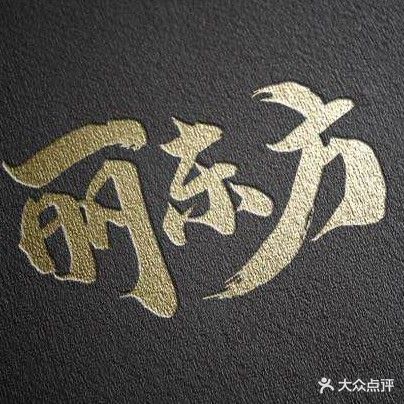 丽东方
大众点评